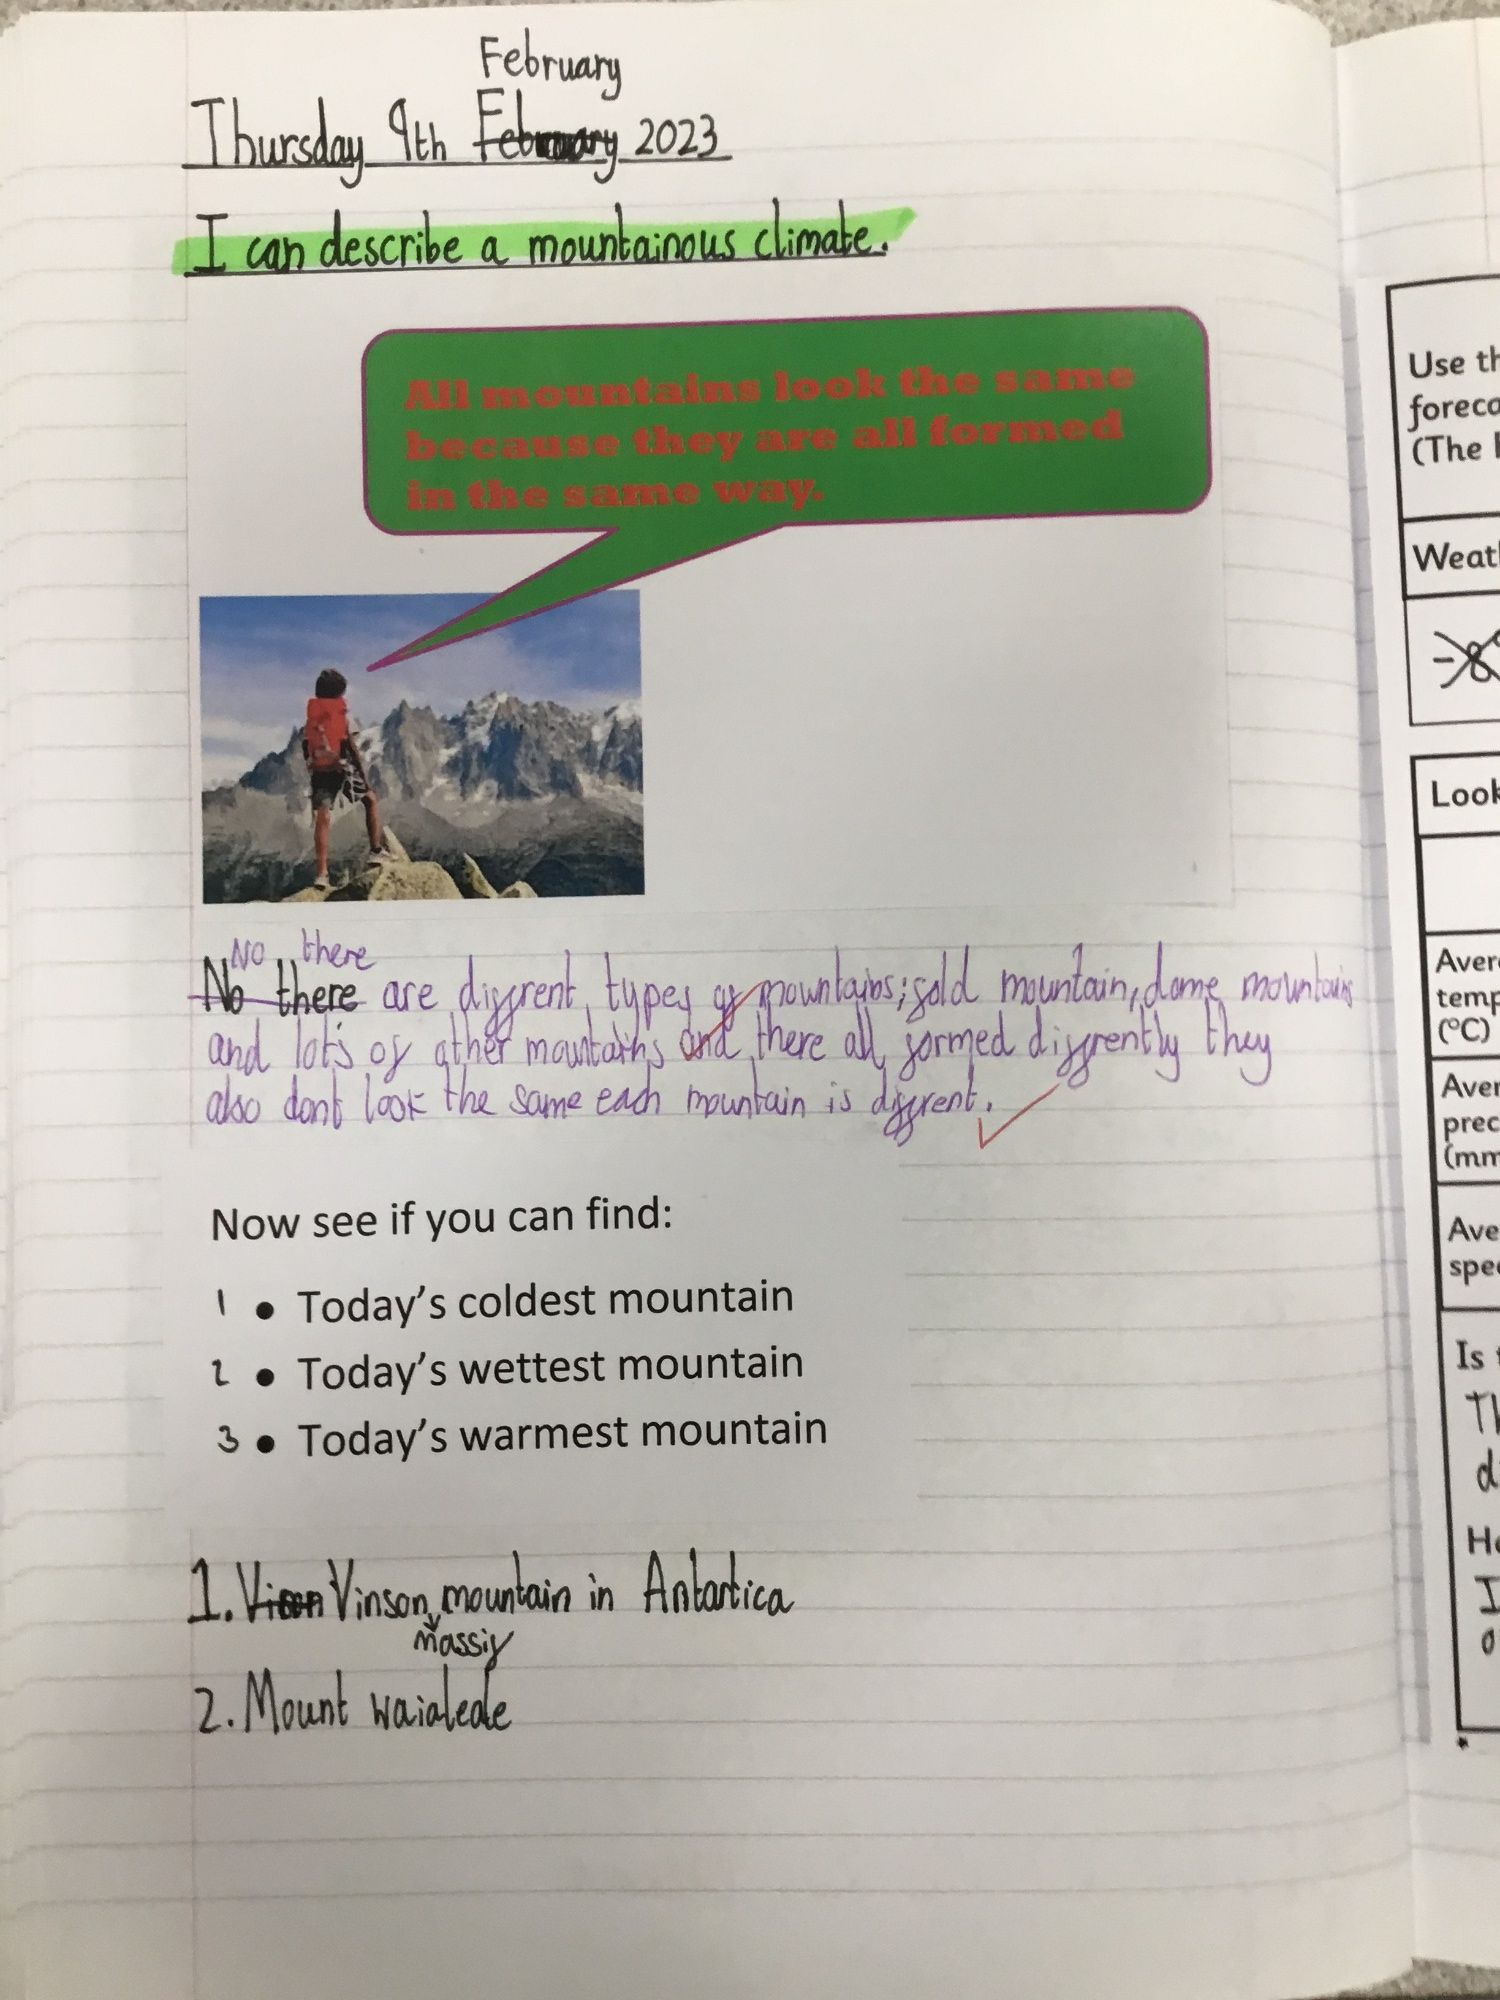 February
Thursday 9th February 2023
I can describe a mountainous climate.
All mountains look the same
because they are all formed
in the same way.
No there
No there are diffrent types of mountains; fold mountain, dome mountains
and lots of other mountains and there all formed diffrently they
also dont look the same each mountain is diffrent.
Now see if you can find:
1 • Today's coldest mountain
2 • Today's wettest mountain
3 • Today's warmest mountain
1. Vinson mountain in Antartica
massif
2. Mount waialeale
Use th
foreca
(The
Weat
-8
Look
Aver
temp
(°C)
Aver
prec
(mm
Ave
spe
Is
Th
d
Ho
I
o